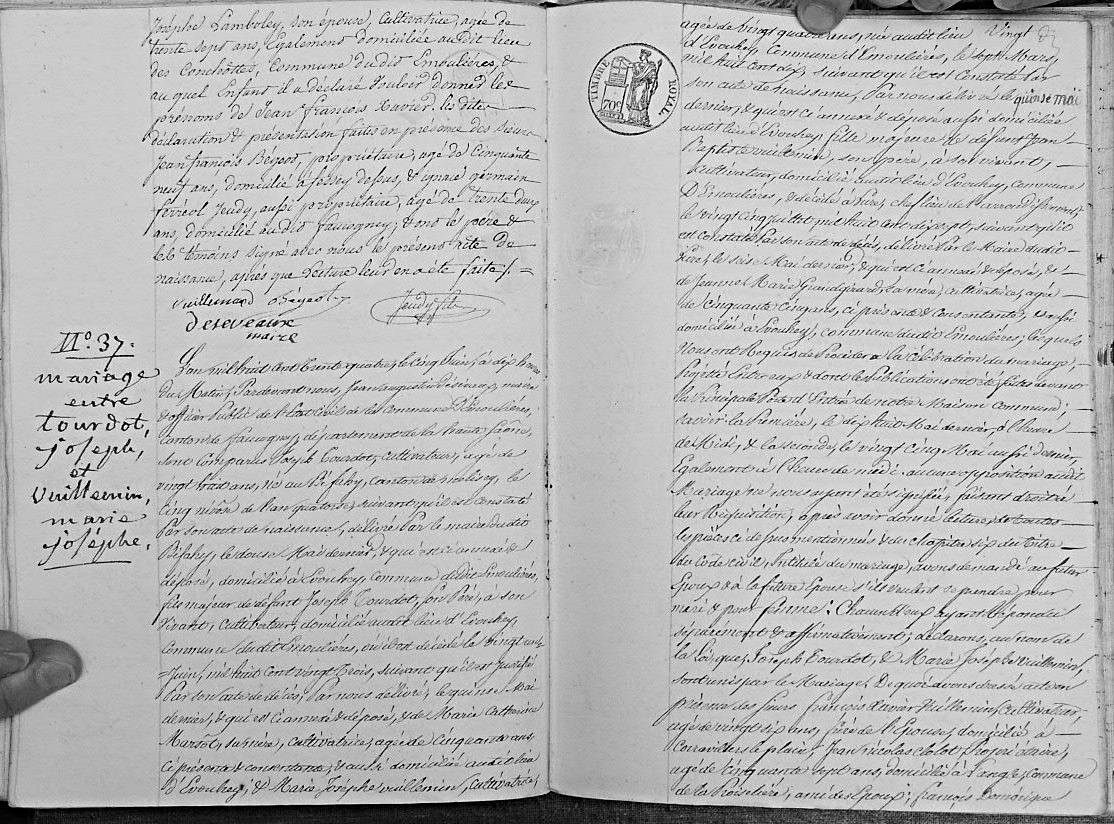 Josephe Lamboley, son épouse, Cultivatrice, agée de
trente sept ans, Egalement domiciliée audit lieu
des Conchottes, Commune dudit Emoulières, &
auquel Enfant il a déclaré Vouloir donner les
prenoms de Jean François Xavier, les dites
déclaration & présentation faites en présence des Sieurs
Jean françois Bégeot, propriétaire, agé de Cinquante
neuf ans, domicilié à fessey dessus, & ignace germain
ferréol Jeudy, aussi propriétaire, agé de trente deux
ans, domicilié audit faucogney; & ont le père &
les témoins Signé avec nous le présent Acte de
naissance, après que lecture leur en a été faite /. =
Vuillemard Bégeot Jeudy fils
Deseveaux
maire
N.o 37.
mariage
entre
tourdot,
joseph,
et
Vuillemin,
marie
joséphe.
L'an mil huit Cent Trente quatre, le Cinq Juin, à dix heures
du Matin, Pardevant nous, Jean augustin Déseveaux, maire
& officier Public de l'Etat Civil de la Commune D'Emoulières,
Canton de faucogney, département de la haute Saône,
sont Comparus Joseph Tourdot, Cultivateur, agé de
vingt huit ans, né au
Cinq nivôse de l'an quatorze, suivant qu'il est Constaté
Par son acte de naissance, délivré Par le maire dudit
le douze Mai dernier, & qui est ci annexé &
déposé, domicilié à Evouhey, Commune dudit Emoulières,
fils majeur de défunt Joseph Tourdot, son Père, à son
Vivant, Cultivateur, domicilié audit lieu d'Evouhey,
Commune dudit Emoulières, où il est décédé le vingt un
Juin, mil huit Cent vingt Trois, suivant qu'il est Justifié
Par son acte de décès, Par nous délivré, le quinze Mai
dernier, & qui est ci annexé & déposé, & de Marie Catherine
sa mère, Cultivatrice, agée de Cinquante ans
Ci présente & Consentante, & aussi domiciliée audit lieu
d'Evouhey, & Marie Josephe Vuillemin, Cultivatrice,
TIMBRE ROYAL
70c
agée de Vingt quatre ans, née audit lieu Vingt
d'Evouhey, Commune d'Emoulières, le sept Mars,
mil huit Cent dix, suivant qu'il est Constaté Par
son acte de naissance, Par nous délivré le quinse mai
dernier, & qui est ci annexé & déposé, aussi domiciliée
audit lieu d'Evouhey, fille majeure de défunt Jean
Baptiste Vuillemin, son père, à son vivant,
Cultivateur, domicilié audit lieu d'Evouhey, Commune
D'Emoulières, & décédé à Lure, chef lieu de l'arrondissement,
le vingt Cinq Juillet mil huit cent dix sept, suivant qu'il
est Constaté Par son acte de décès, délivré Par le Maire dudit
Lure, le seize Mai dernier, & qui est ci annexé & déposé, &
de Jeanne Marie Grandgirard, sa mère, Cultivatrice, agée
de Cinquante Cinq ans, ci présente & Consentante, & aussi
domiciliée à Evouhey, Commune dudit Emoulières; lesquels
Nous ont Requis de Procéder à la Célébration du mariage
Projetté Entre eux & dont les Publications ont été faites devant
la Principale Porte d'Entrée de notre Maison Commune;
savoir la Première, le dix huit Mai dernier, à l'heure
de Midi, & la seconde, le vingt Cinq Mai aussi dernier,
Egalement à l'heure de midi: aucune opposition audit
Mariage ne nous ayant été signifiée, faisons droit à
leur Requisition, après avoir donné lecture de toutes
les pièces ci dessus mentionnées & du Chapitre six du titre
du Code Civil, Intitulé du mariage, avons demandé au futur
Epoux & à la future Epouse s'ils veulent se prendre pour
mari & pour femme: Chacun d'eux ayant Répondu
séparément & affirmativement; déclarons, au nom de
la loi, que Joseph Tourdot, & Marie Josephe Vuillemin,
sont unis par le Mariage. De quoi avons dressé acte en
présence des sieurs françois Xavier Vuillemin, Cultivateur,
agé de vingt six ans, frère de l'Epouse, domicilié à
Jean Nicolas Propriétaire,
agé de Cinquante sept ans, domicilié à Langle, Commune
de la Proiselière, ami des Epoux; françois Dominique